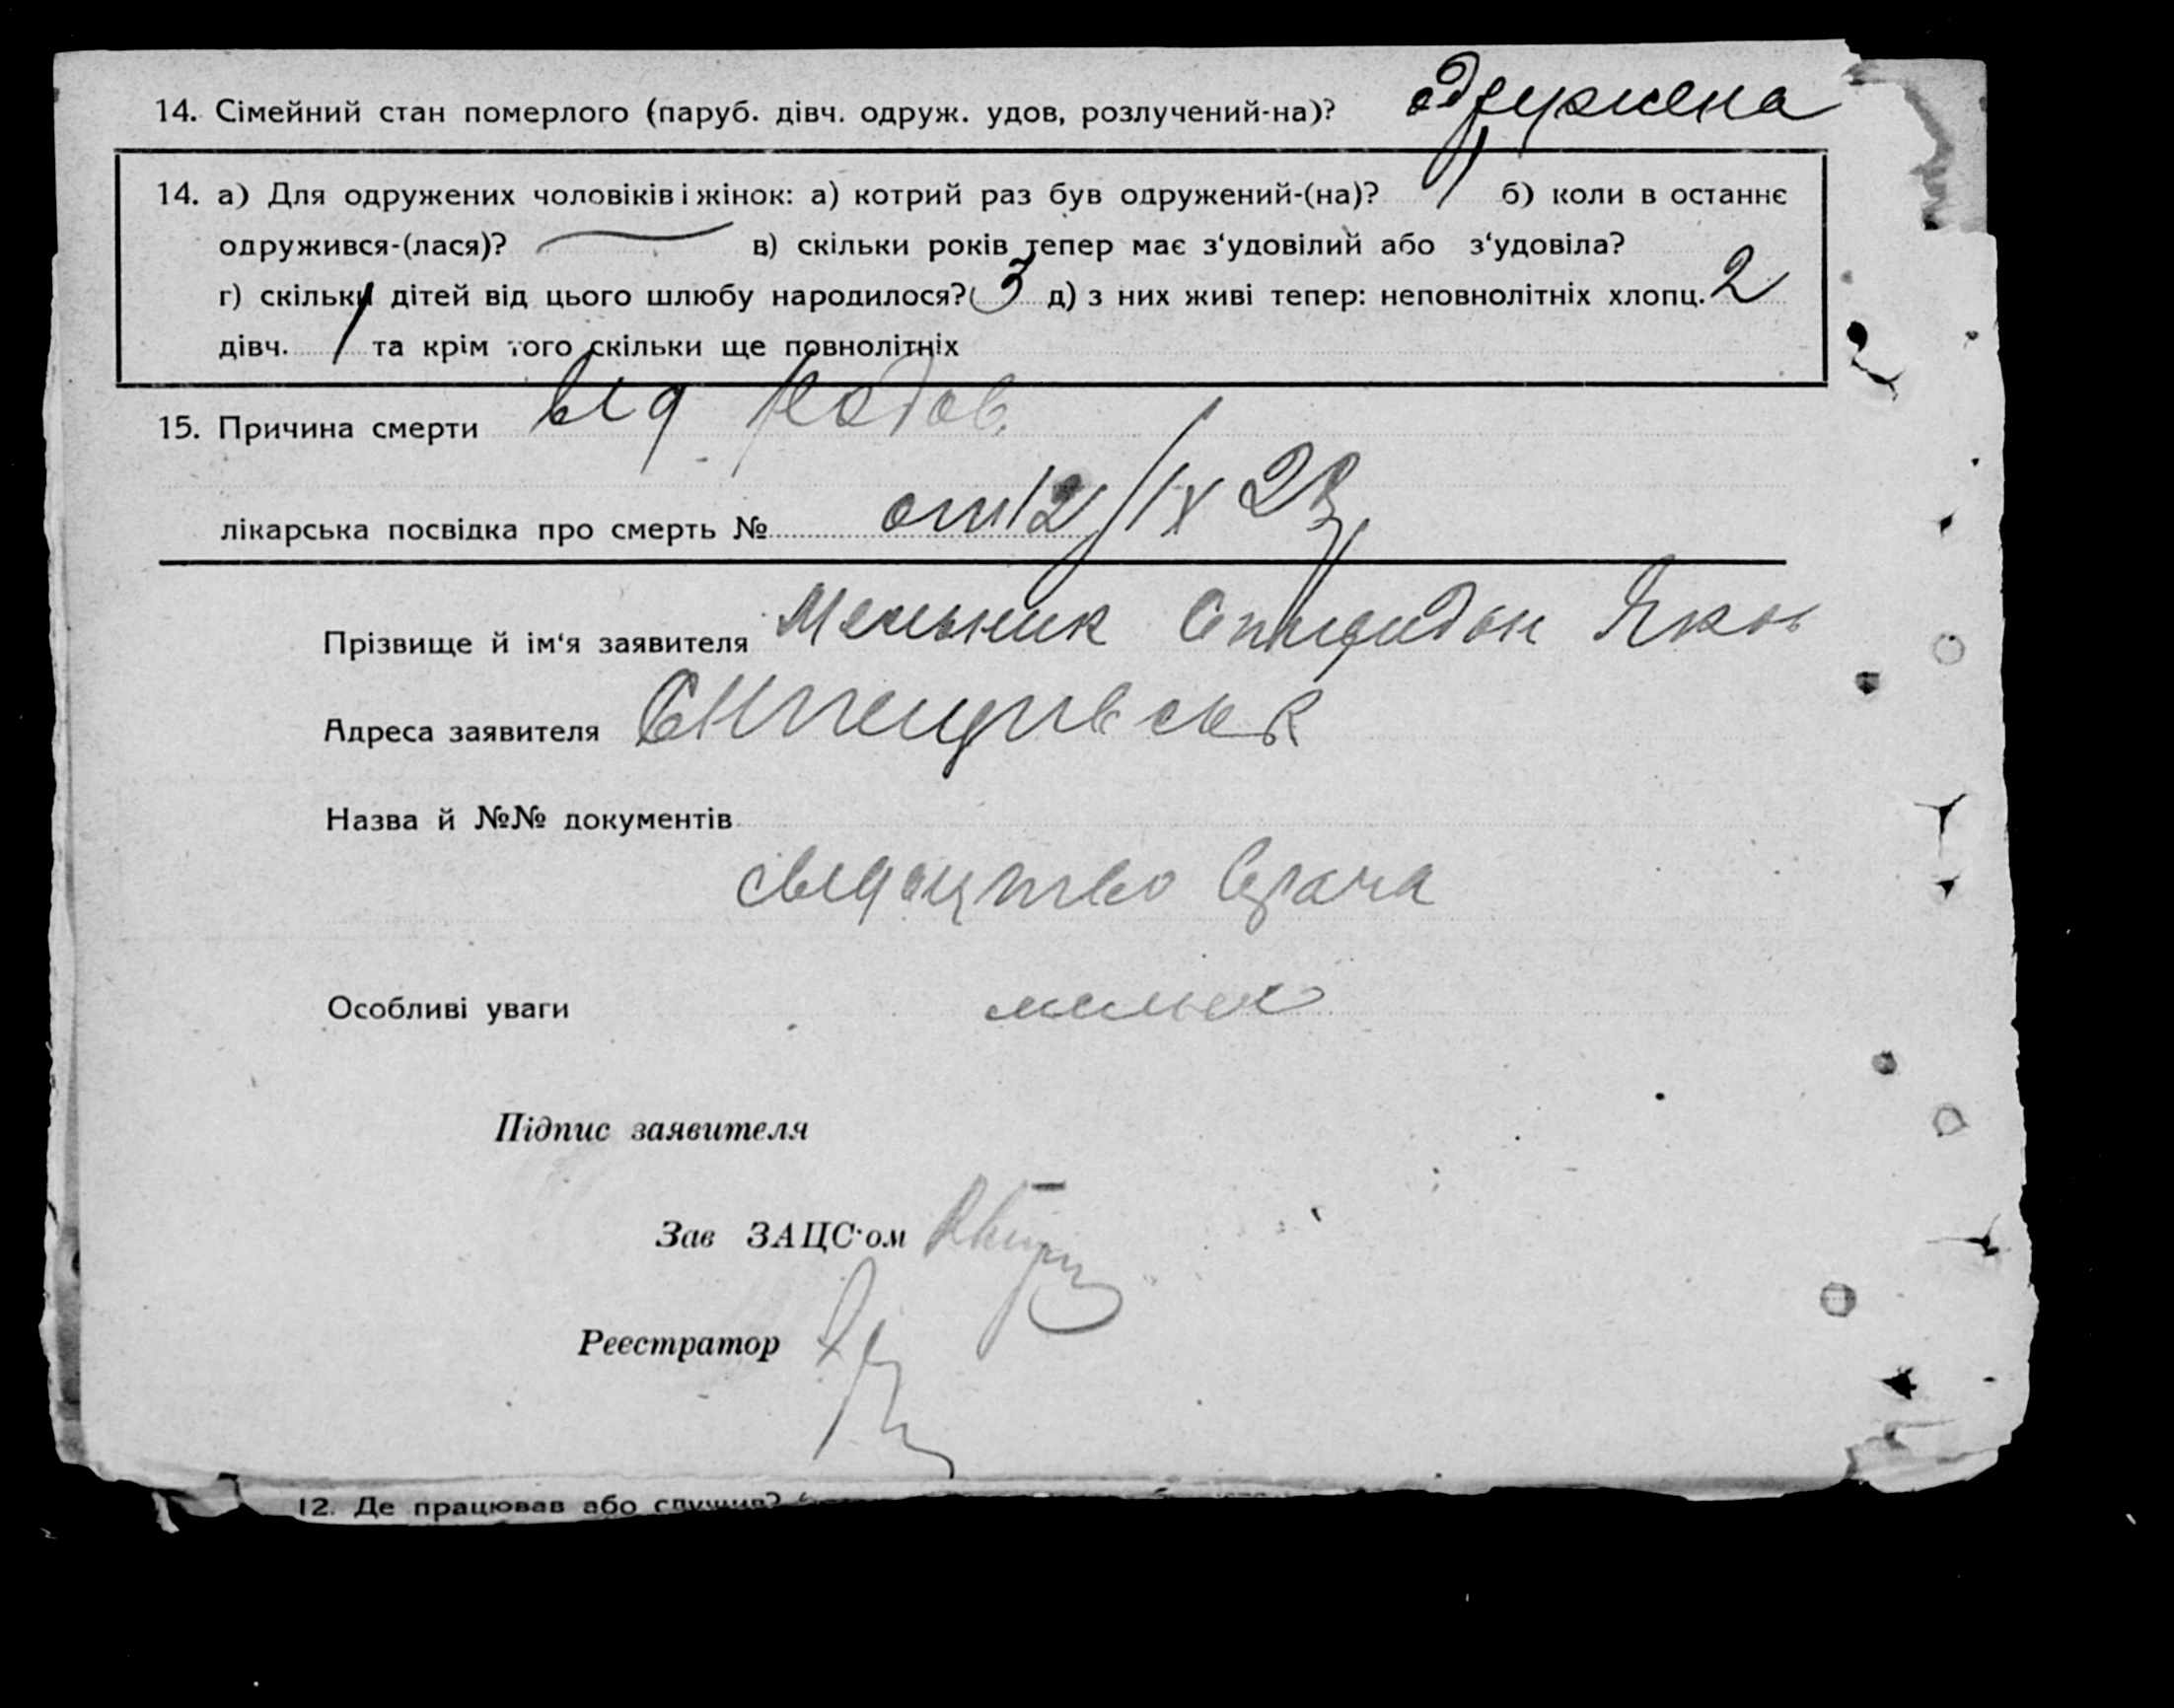 14. Сімейний стан померлого (паруб. дівч. одруж. удов, розлучений-на)? одружена
14. а) Для одружених чоловіків і жінок: а) котрий раз був одружений-(на)? 1 б) коли в останнє
одружився-(лася)? — в) скільки років тепер має з‘удовілий або з‘удовіла?
г) скільки дітей від цього шлюбу народилося? 3 д) з них живі тепер: неповнолітніх хлопц. 2
дівч. 1 та крім того скільки ще повнолітніх
15. Причина смерти від родов
лікарська посвідка про смерть № от 12/IX 23
Прізвище й ім‘я заявителя Мельник Спиридон Яков
Адреса заявителя
Назва й №№ документів
свідоцтво врача
Особливі уваги
Підпис заявителя
Зав ЗАЦС‘ом
Реєстратор
12. Де працював або служив?